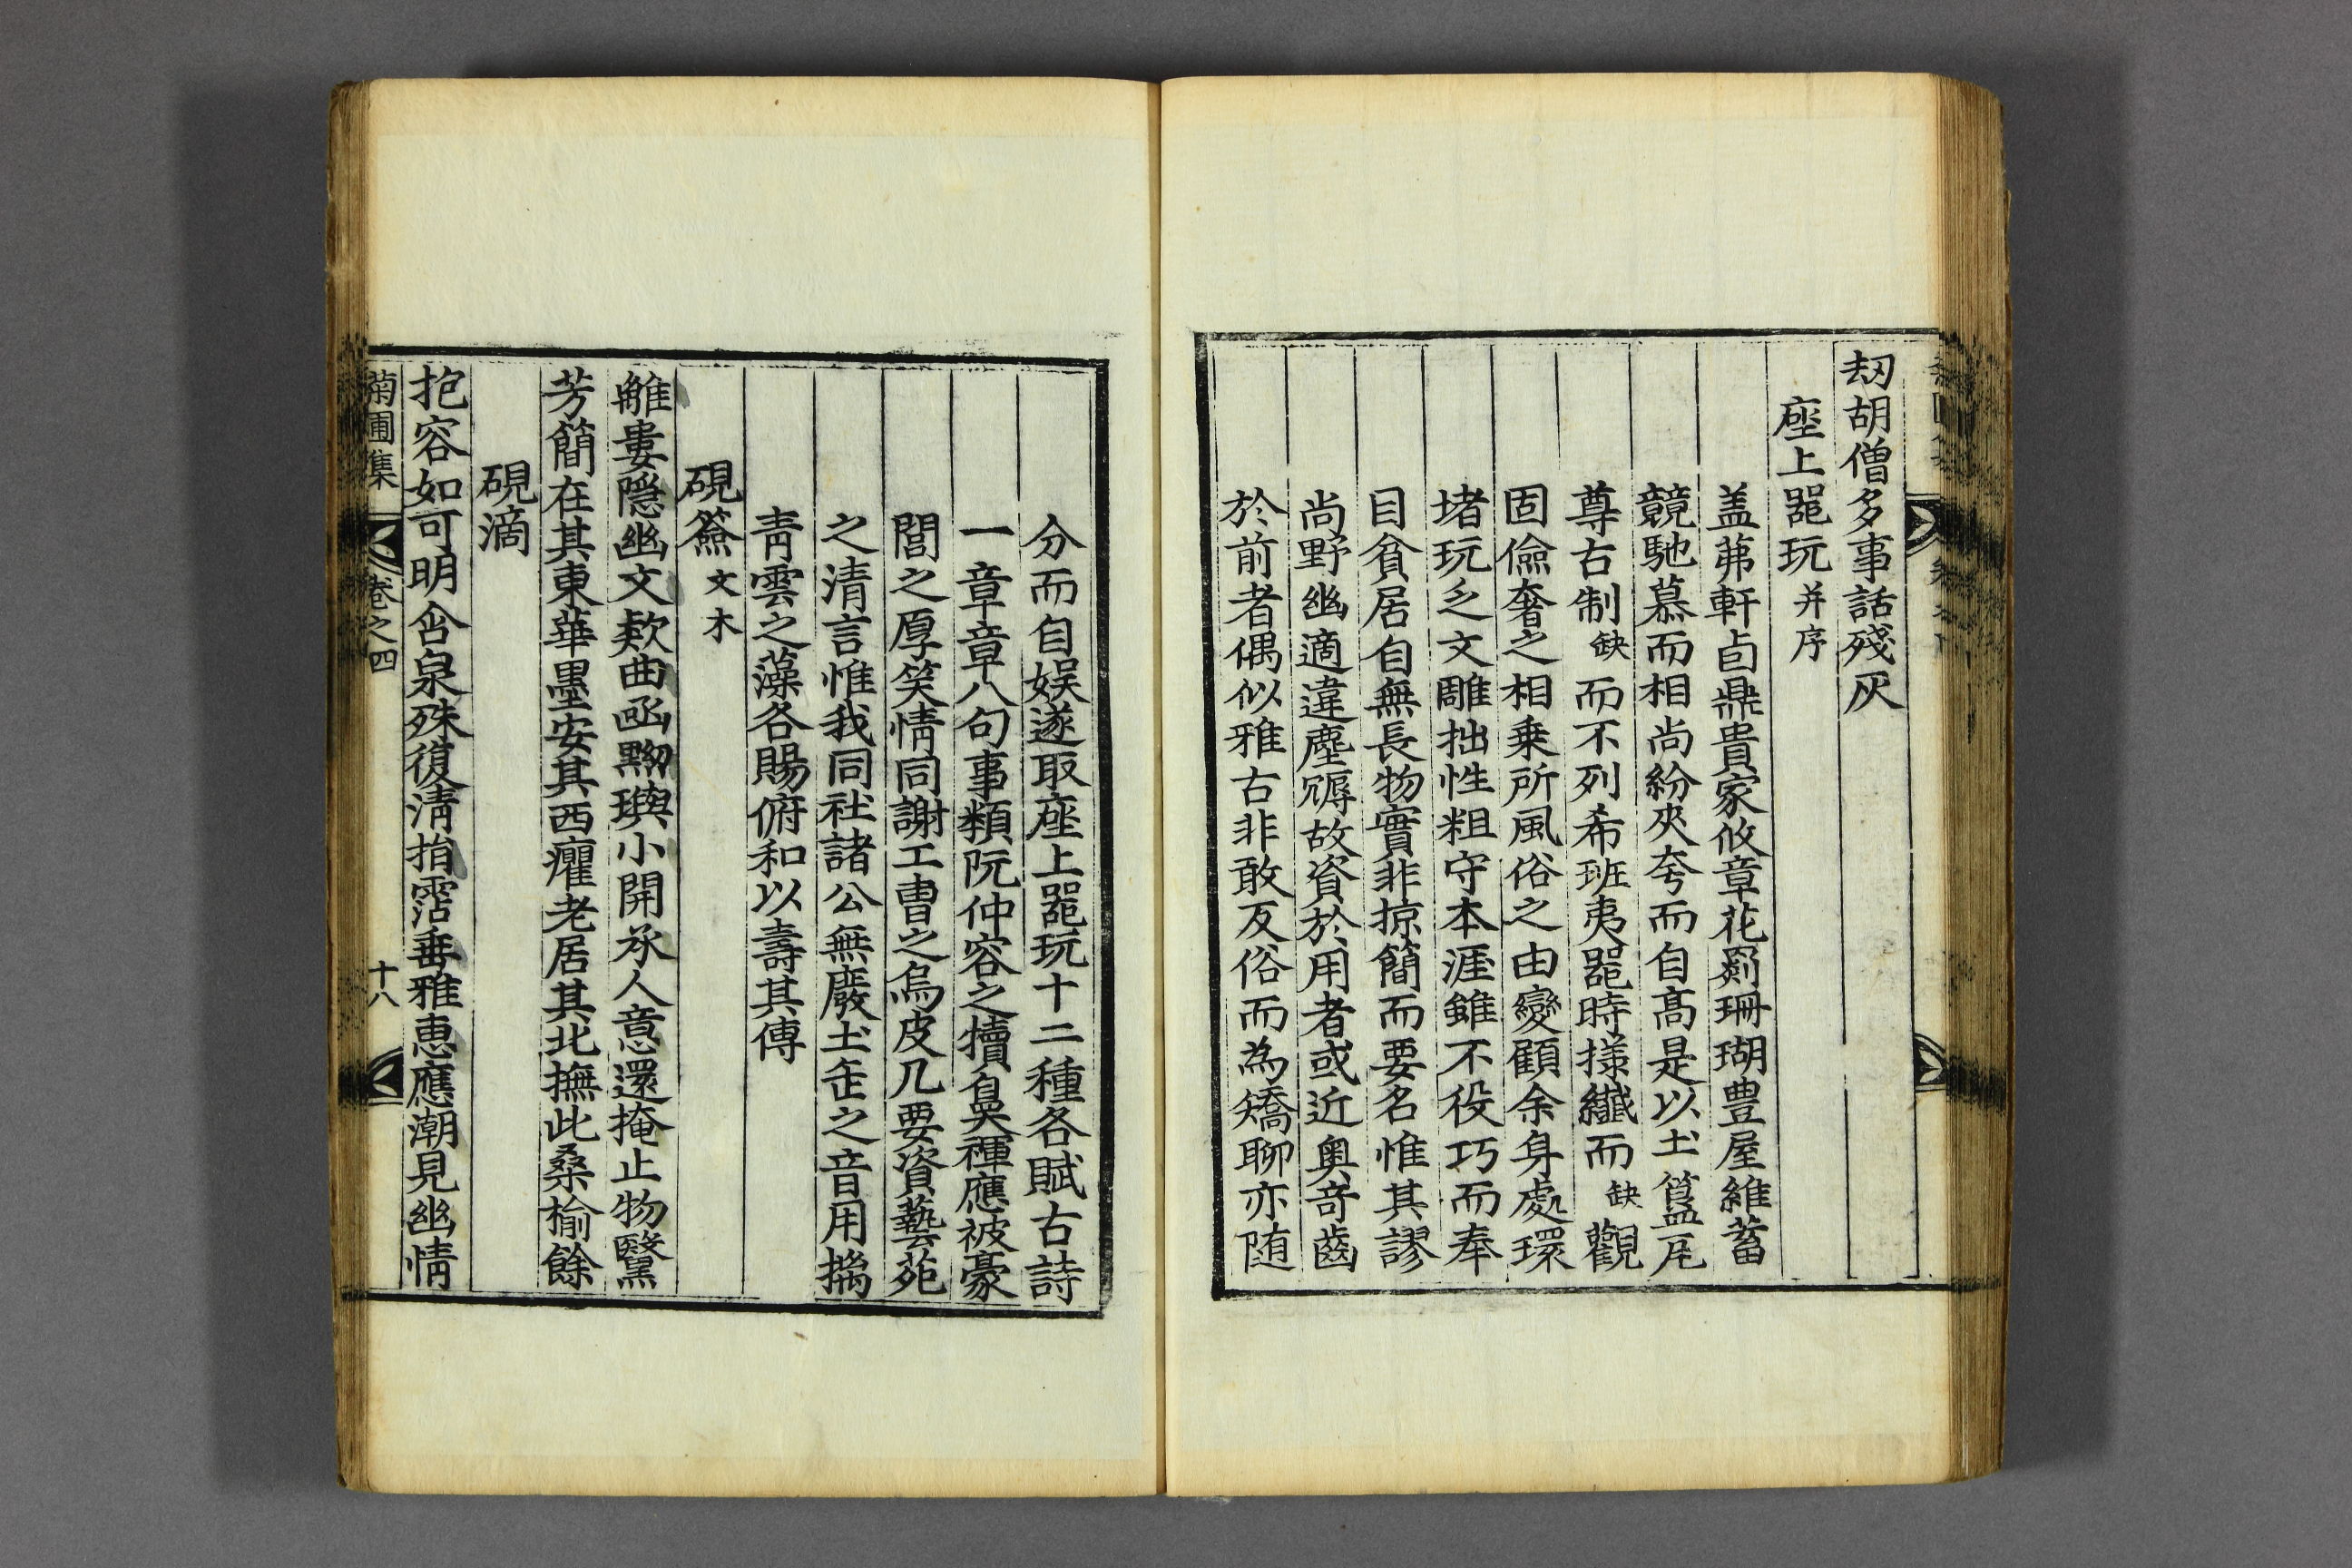 刼胡僧多事話殘灰
座上噐玩 并序
盖茀軒卣鼎貴家攸章花罽珊瑚豊屋維蓄
競馳慕而相尚紛夾夸而自髙是以圡簋凥
尊古制 缺 而不列希班夷噐時様纎而 缺 觀
固儉奢之相乗所風俗之由變顧余身處環
堵玩乏文雕拙性粗守本涯雖不役巧而奉
目貧居自無長物實非掠簡而要名惟其謬
尚野幽適違塵㒔故資於用者或近奥竒齒
於前者偶似雅古非敢反俗而為矯聊亦随
分而自娱遂取座上噐玩十二種各賦古詩
一章章八句事類阮仲容之犢鼻褌應被豪
閭之厚笑情同謝工曺之烏皮几要資藝苑
之清言惟我同社諸公無廢圡缶之音用摛
青雲之藻各賜俯和以壽其傳
硯簽 文木
雝婁隠幽文欵曲函黝璵小開承人意還掩止物黳
芳簡在其東華墨安其西癯老居其北撫此桑榆餘
硯滴
抱容如可明含泉殊復淸指霑垂雅恵應潮見幽情
菊圃集 卷之四 十八